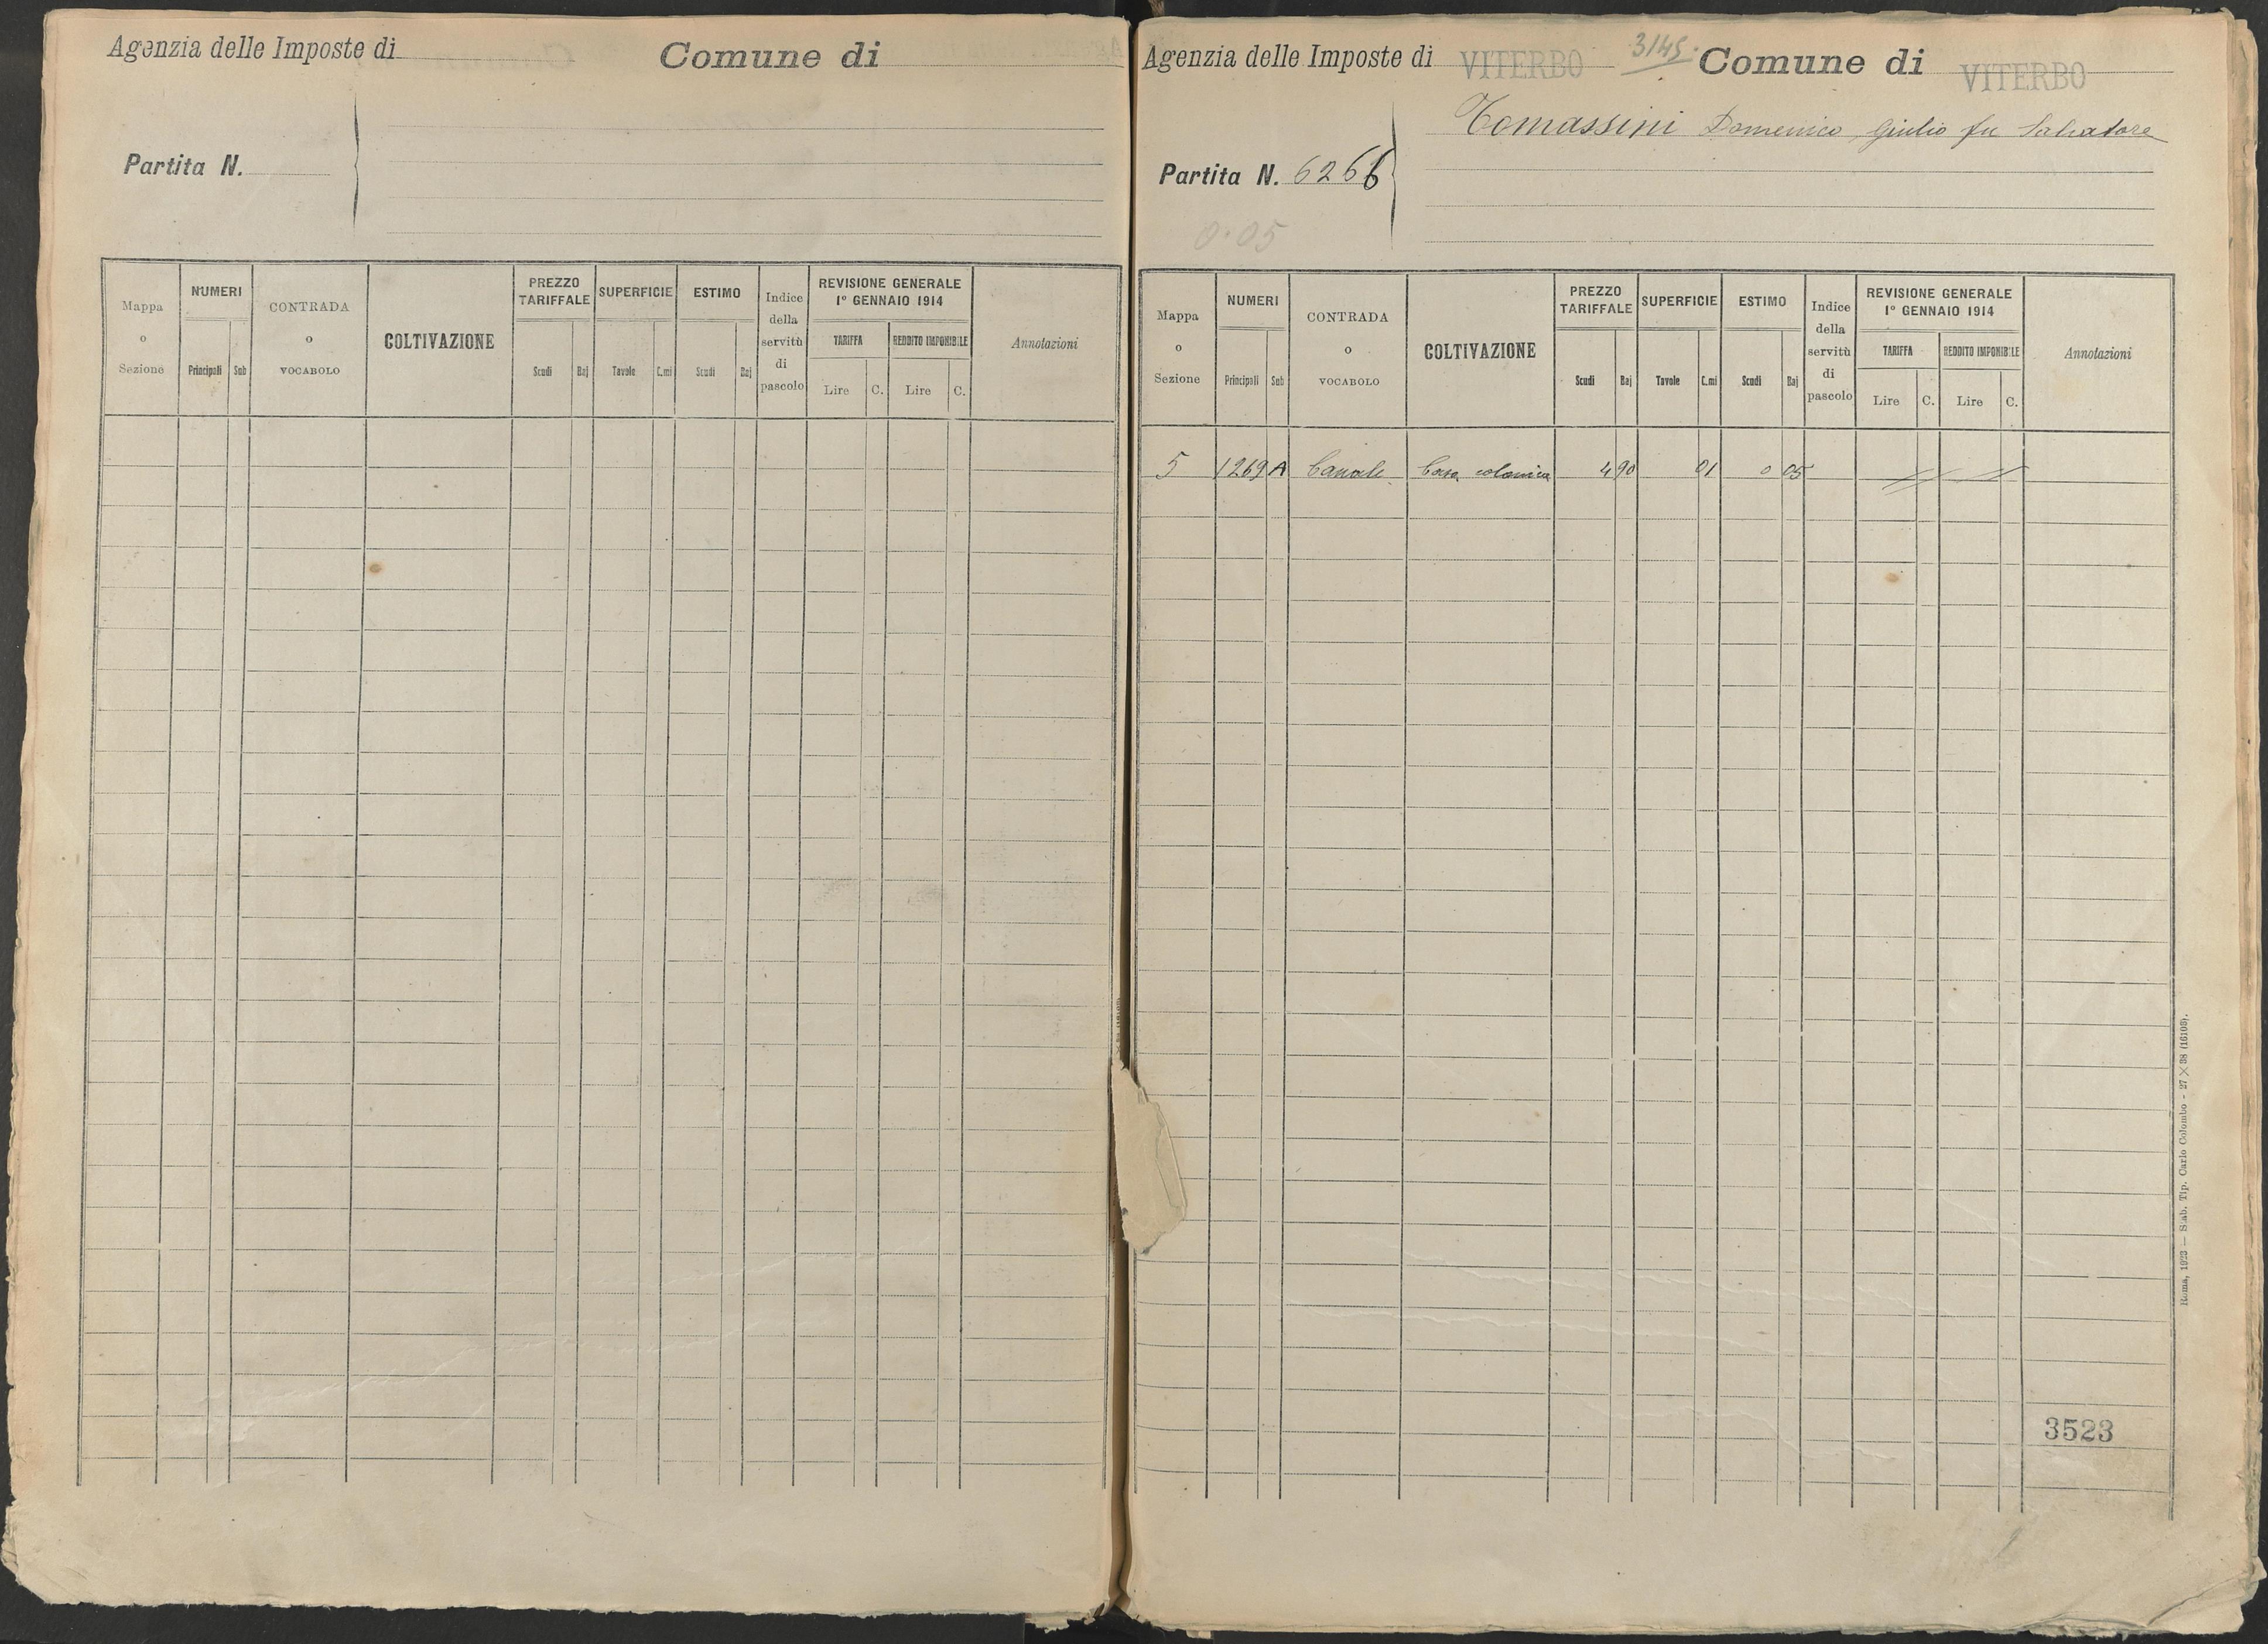 Agenzia delle Imposte di Comune di
Partita N.
Mappa o Sezione
NUMERI
Principali Sub
CONTRADA o VOCABOLO
COLTIVAZIONE
PREZZO TARIFFALE
Scudi Baj
SUPERFICIE
Tavole C.mi
ESTIMO
Scudi Baj
Indice della servitù di pascolo
REVISIONE GENERALE
1° GENNAIO 1914
TARIFFA REDDITO IMPONIBILE
Lire C. Lire C.
Annotazioni
Agenzia delle Imposte di VITERBO 3145. Comune di VITERBO
Tomassini Domenico Giulio fu Salvatore
Partita N. 6266
0.05
Mappa o Sezione
NUMERI
Principali Sub
CONTRADA o VOCABOLO
COLTIVAZIONE
PREZZO TARIFFALE
Scudi Baj
SUPERFICIE
Tavole C.mi
ESTIMO
Scudi Baj
Indice della servitù di pascolo
REVISIONE GENERALE
1° GENNAIO 1914
TARIFFA REDDITO IMPONIBILE
Lire C. Lire C.
Annotazioni
5 1269 A Canale Casa colonica 4 90 01 0 05
3523
Roma, 1923 — Stab. Tip. Carlo Colombo - 27 × 38 (16103).